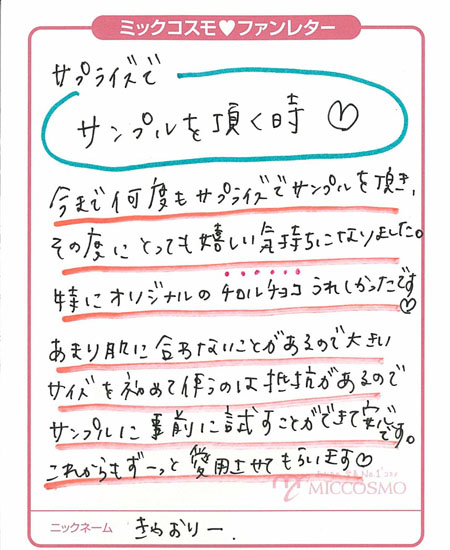 ミックコスモ♥ファンレター
サプライズで
サンプルを頂く時♡
今まで何度もサプライズでサンプルを頂き、
その度にとっても嬉しい気持ちになりました。
特にオリジナルのチロルチョコうれしかったです♡
あまり肌に合わないことがあるので大きい
サイズを初めて使うのは抵抗があるので
サンプルに事前に試すことができて安心です。
これからもずーっと愛用させてもらいます♡
MICCOSMO
ニックネーム きゃおりー.